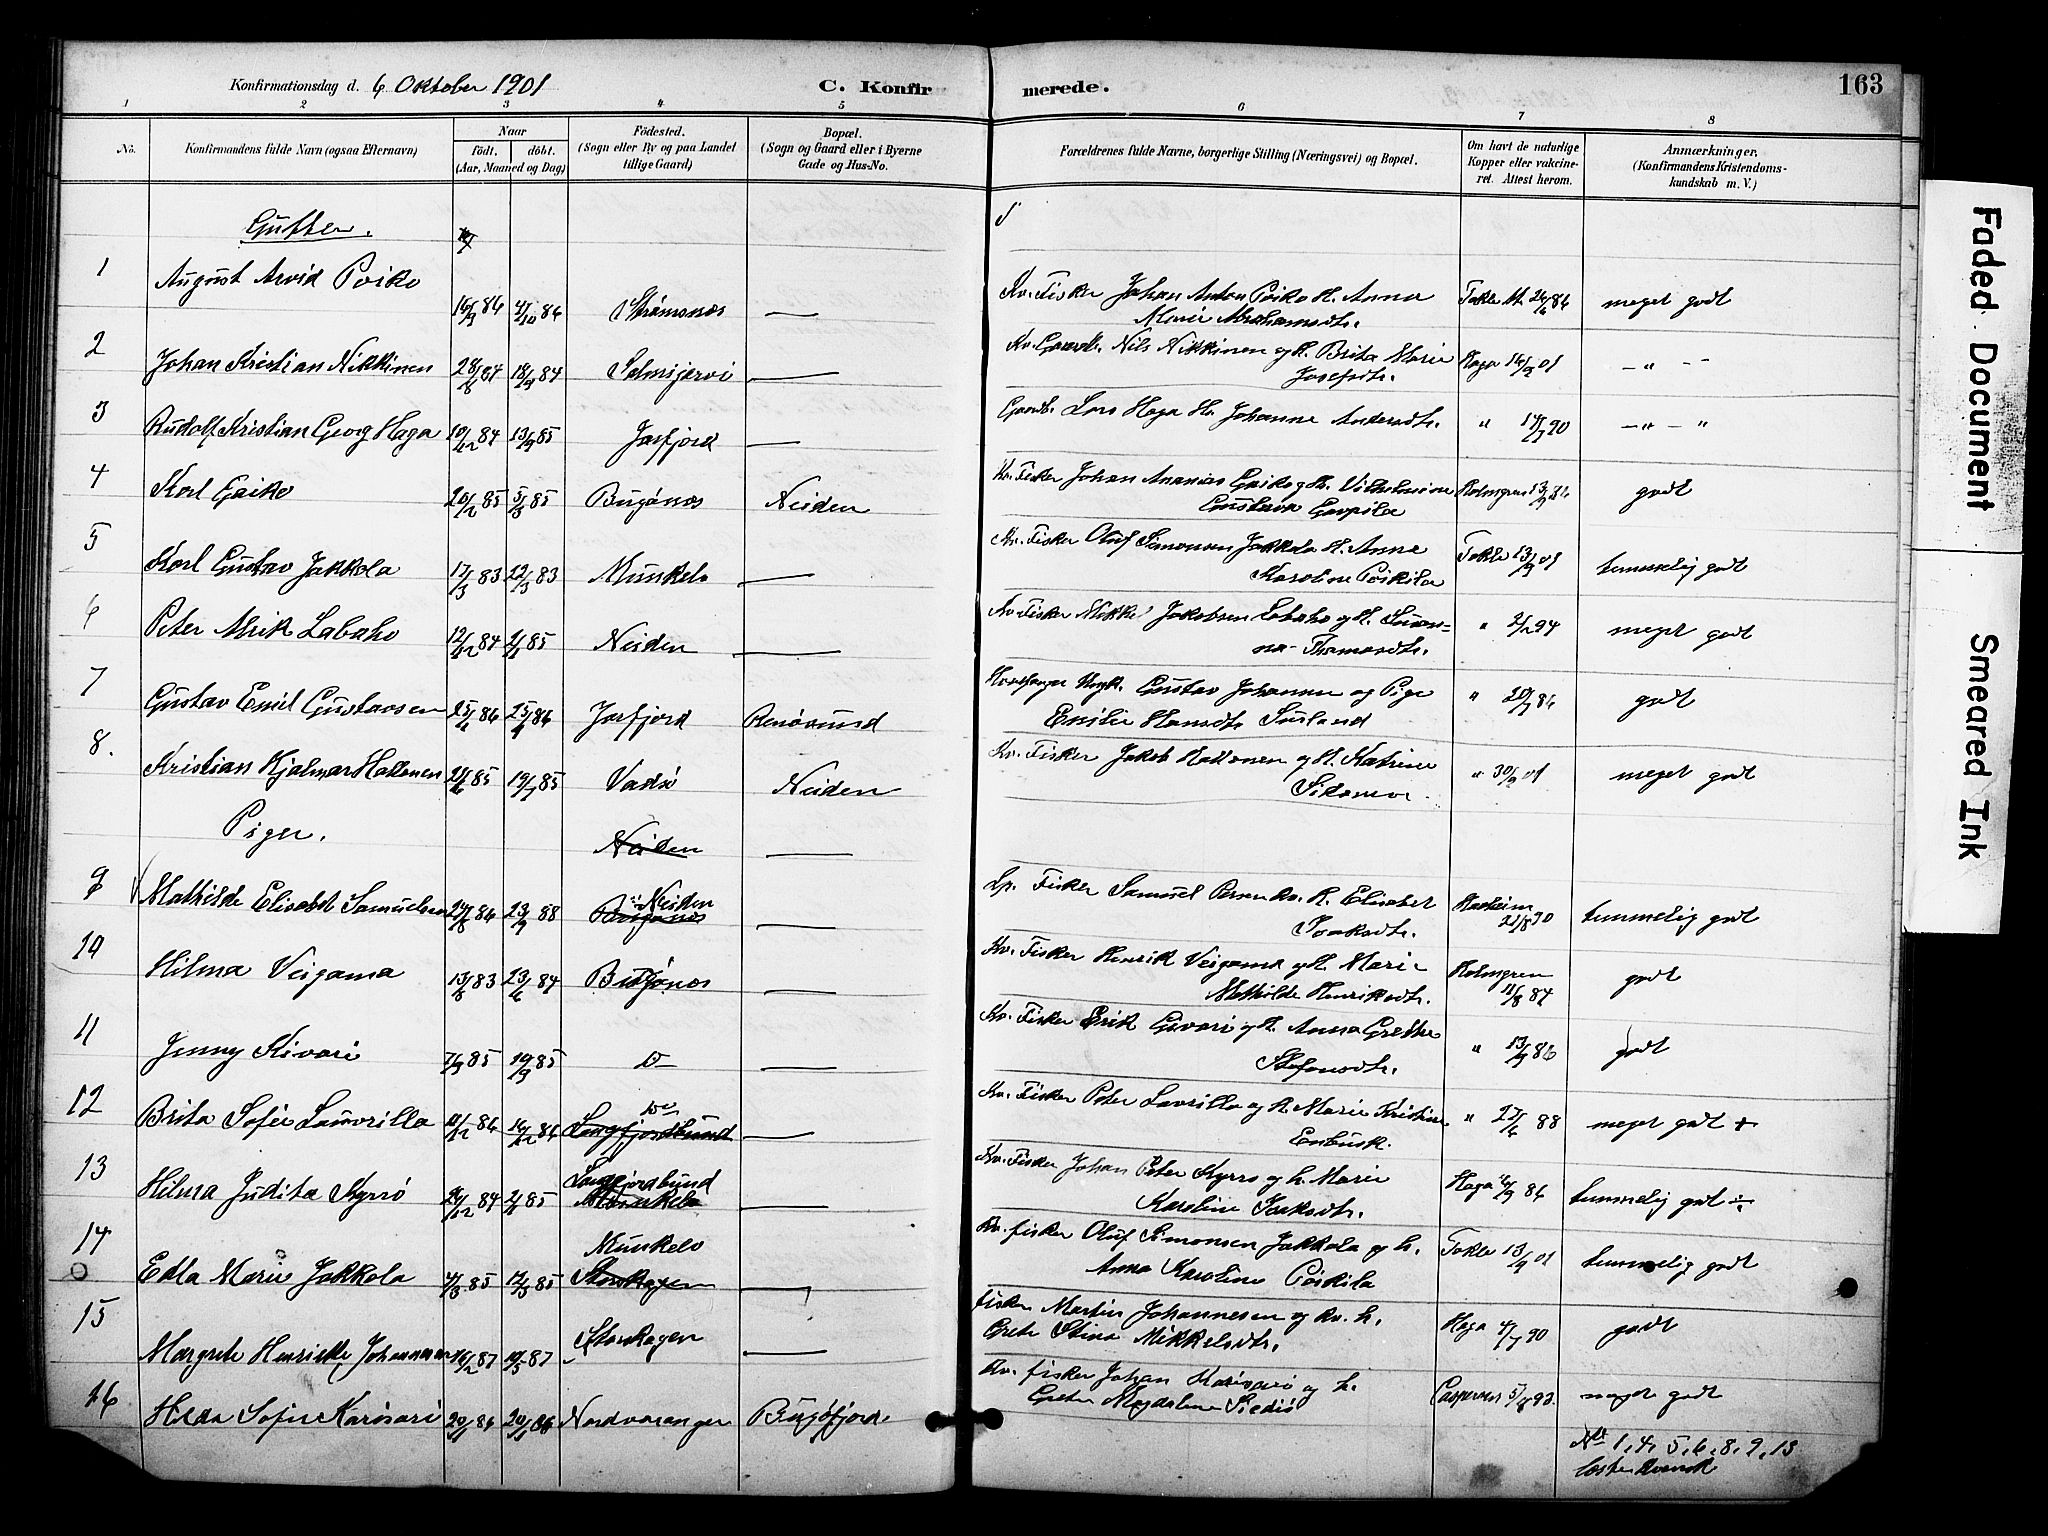 Konfirmationsdag d. 6 Oktober 1901
C. Konfirmerede.
163
1 2 3 4 5 6 7 8
No.
Konfirmandens fulde Navn (ogsaa Efternavn)
Naar
födt. döbt.
(Aar, Maaned og Dag)
Födested.
(Sogn eller By og paa Landet
tillige Gaard)
Bopæl.
(Sogn og Gaard eller i Byerne
Gade og Hus-No.
Forældrenes fulde Navne, borgerlige Stilling (Næringsvei) og Bopæl.
Om havt de naturlige
Kopper eller vakcine-
ret. Attest herom.
Anmærkninger,
(Konfirmandens Kristendoms-
kundskab m. V.)
Gutter.
1 August Arvid Poiko 16/9 86 4/10 86 Strømsnes — Kv. Fisker Johan Anton Poiko H. Anna
Marie Abrahamsdtr. Takle 86 meget godt
2 Johan Kristian Nikkinen 28/8 84 18/9 84 Salmijærvi — Kv. Gaardb. Nils Nikkinen og H. Brita Marie
Josefsdtr. Haga 14/9 01 — " —
3 Rudolf Kristian Georg Haga 10/12 84 13/9 85 Jarfjord — Gaardb. Lars Haga H. Johanne Andersdtr. " 17/7 90 — " — "
4 Karl Gaiko 20/2 85 5/3 85 Bugønes Neiden Kv. Fisker Johan Ananias Gaiko og H. Vilhelmine
Gustava Holmgren 13/9 86 godt
5 Karl Gustav Jakkola 17/3 83 22/3 83 Munkelv — Kv. Fisker Oluf Simonsen Jakkola H. Anna
Karoline Poikila Takle 13/9 01 temmelig godt
6 Peter Labaho 12/12 84 2/1 85 Neiden — Kv. Fisker Mikkel Jakobsen Labaho og H. Susan=
na Thomasdtr. " 2/2 94 meget godt
7 Gustav Emil Gustavsen 86 86 Jarfjord Renøsund Ungk. Gustav Johansen og Pige
Emilie Hansdtr. " 20/7 86 godt
8. Kristian Hjalmar Hattonen 85 19/7 85 Vadsø Neiden Kv. Fisker Jakob Hattonen og H. Katrine
" 30/9 01 meget godt
Piger. Neiden —
9 Mathilde Elisabet Samuelsen 86 23/9 88 Neiden
Bugønes — Lp. Fisker Samuel Persen kv. H. Elisabet
Isaksdtr. 21/8 90 temmelig godt
10 Hilma Veigama 13/8 83 23/6 84 Bugønes — Kv. Fisker Henrik Veigama og H. Marie
Mathilde Henriksdtr. Holmgren
11/8 84 godt
11 Jenny Kivari 7/9 85 19/9 85 D — Kv. Fisker Erik Givari og H. Anna Grethe
Stefansdtr. " 13/9 86 godt
12 Brita Sofie Laurilla 11/12 86 16/12 86 Do
Langfjordbund — Kv. Fisker Peter Laurilla og H. Marie Kristine
Enbusk. " 27/6 88 meget godt +
13 Hilma Judita Kyrrö 29/12 84 2/1 85 Langfjordbund
Munkelv — Kv. Fisker Johan Peter Kyrrö og h. Marie
Karoline Isaksdtr. Haga 86 temmelig godt ÷
14 Edla Marie Jakkola 4/3 85 12/3 85 Munkelv
Storskogen — Kv. fisker Oluf Simonsen Jakkola og h.
Anna Karoline Poikila Takle 13/9 01 temmelig godt
15 Margrete Henrikke Johannesen 16/2 87 10/5 87 Storskogen — fisker Martin Johannesen og kv. h.
Grete Stina Mikkelsdtr. Haga 4/7 90 godt
16 Hilda Sofie Karivari 20/1 86 20/1 86 Nordvaranger Bugøfjord Kv. fisker Johan Karivari og h.
Grete Magdalena Siediö Caspersen 5/8 93 meget godt
No 1, 4, 5, 6, 8, 9, 13
læste kvensk
Faded Document
Smeared Ink